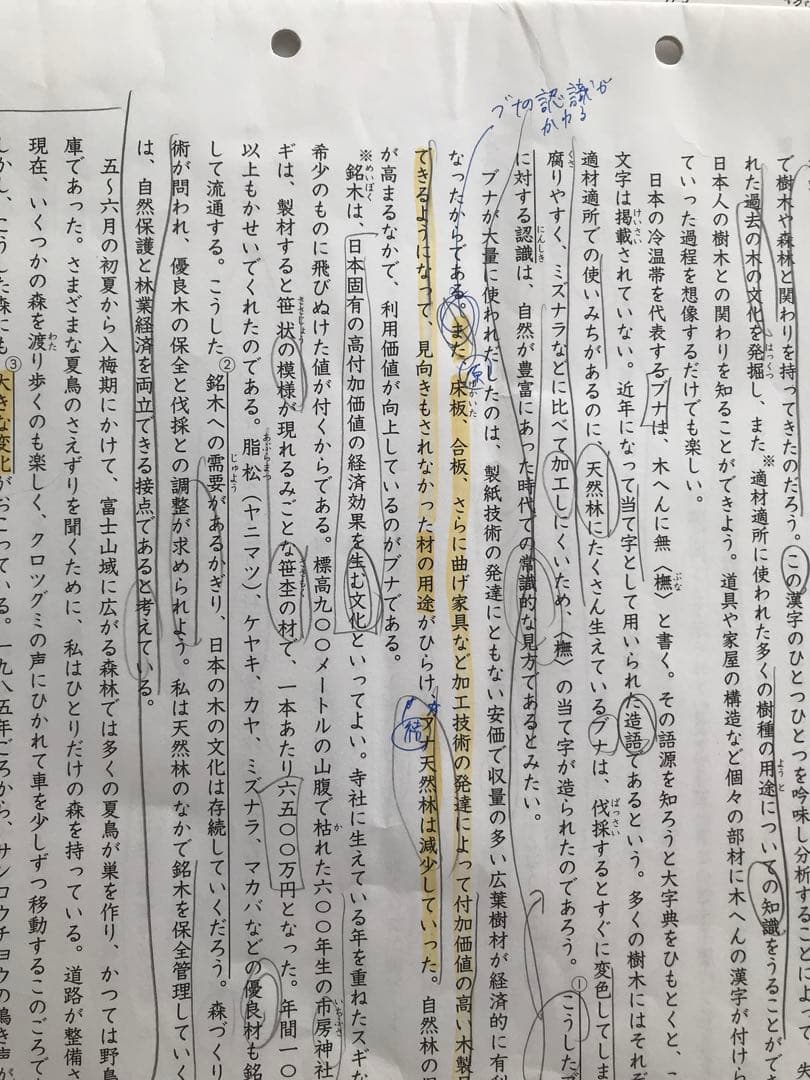 ブナの認識が
かわる
で樹木や森林と関わりを持ってきたのだろう。この漢字のひとつひとつを吟味し分析することによって
れた過去の木の文化を発掘し、また※適材適所に使われた多くの樹種の用途についての知識をうることがで
日本人の樹木との関わりを知ることができよう。道具や家屋の構造など個々の部材に木へんの漢字が付けら
ていった過程を想像するだけでも楽しい。
日本の冷温帯を代表するブナは、木へんに無〈橅〉と書く。その語源を知ろうと大字典をひもとくと、こ
文字は掲載されていない。近年になって当て字として用いられた造語であるという。多くの樹木にはそれぞ
適材適所での使いみちがあるのに、天然林にたくさん生えているブナは、伐採するとすぐに変色してしま
腐りやすく、ミズナラなどに比べて加工しにくいため、〈橅〉の当て字が造られたのであろう。①こうしたブ
に対する認識は、自然が豊富にあった時代での常識的な見方であるとみたい。
ブナが大量に使われだしたのは、製紙技術の発達にともない安価で収量の多い広葉樹材が経済的に有利
なったからである。また、床板、合板、さらに曲げ家具など加工技術の発達によって付加価値の高い木製品
原
できるようになって、見向きもされなかった材の用途がひらけ、ブナ天然林は減少していった。自然林の保
結
が高まるなかで、利用価値が向上しているのがブナである。
※銘木は、日本固有の高付加価値の経済効果を生む文化といってよい。寺社に生えている年を重ねたスギな
希少のものに飛びぬけた値が付くからである。標高九〇〇メートルの山腹で枯れた六〇〇年生の市房神社
ギは、製材すると笹状の模様が現れるみごとな笹杢の材で、一本あたり六五〇〇万円となった。年間一〇
以上もかせいでくれたのである。脂松（ヤニマツ）、ケヤキ、カヤ、ミズナラ、マカバなどの優良材も銘
して流通する。こうした②銘木への需要があるかぎり、日本の木の文化は存続していくだろう。森づくり
術が問われ、優良木の保全と伐採との調整が求められよう。私は天然林のなかで銘木を保全管理していく
は、自然保護と林業経済を両立できる接点であると考えている。
五〜六月の初夏から入梅期にかけて、富士山域に広がる森林では多くの夏鳥が巣を作り、かつては野鳥
庫であった。さまざまな夏鳥のさえずりを聞くために、私はひとりだけの森を持っている。道路が整備さ
現在、いくつかの森を渡り歩くのも楽しく、クロツグミの声にひかれて車を少しずつ移動するこのごろで
しかし、こうした森にも③大きな変化がおこっている。一九八五年ごろから、サンコウチョウの鳴き声が